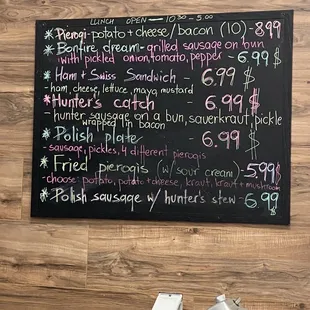 LUNCH OPEN - 10:30 - 5:00
* Pierogi - potato + cheese / bacon (10) - 8.99
* Bonfire dream - grilled sausage on bun
with pickled onion, tomato, pepper - 6.99 $
* Ham + Swiss Sandwich - 6.99 $
- ham, cheese, lettuce, mayo, mustard
* Hunter's catch - 6.99 $
- hunter sausage on a bun, sauerkraut, pickle
wrapped in bacon
* Polish plate - 6.99 $
- sausage, pickles, 4 different pierogis
* Fried pierogis (w/ sour cream) - 5.99 $
- choose: potato, potato + cheese, kraut, kraut + mushroom
* Polish sausage w/ hunter's stew - 6.99 $